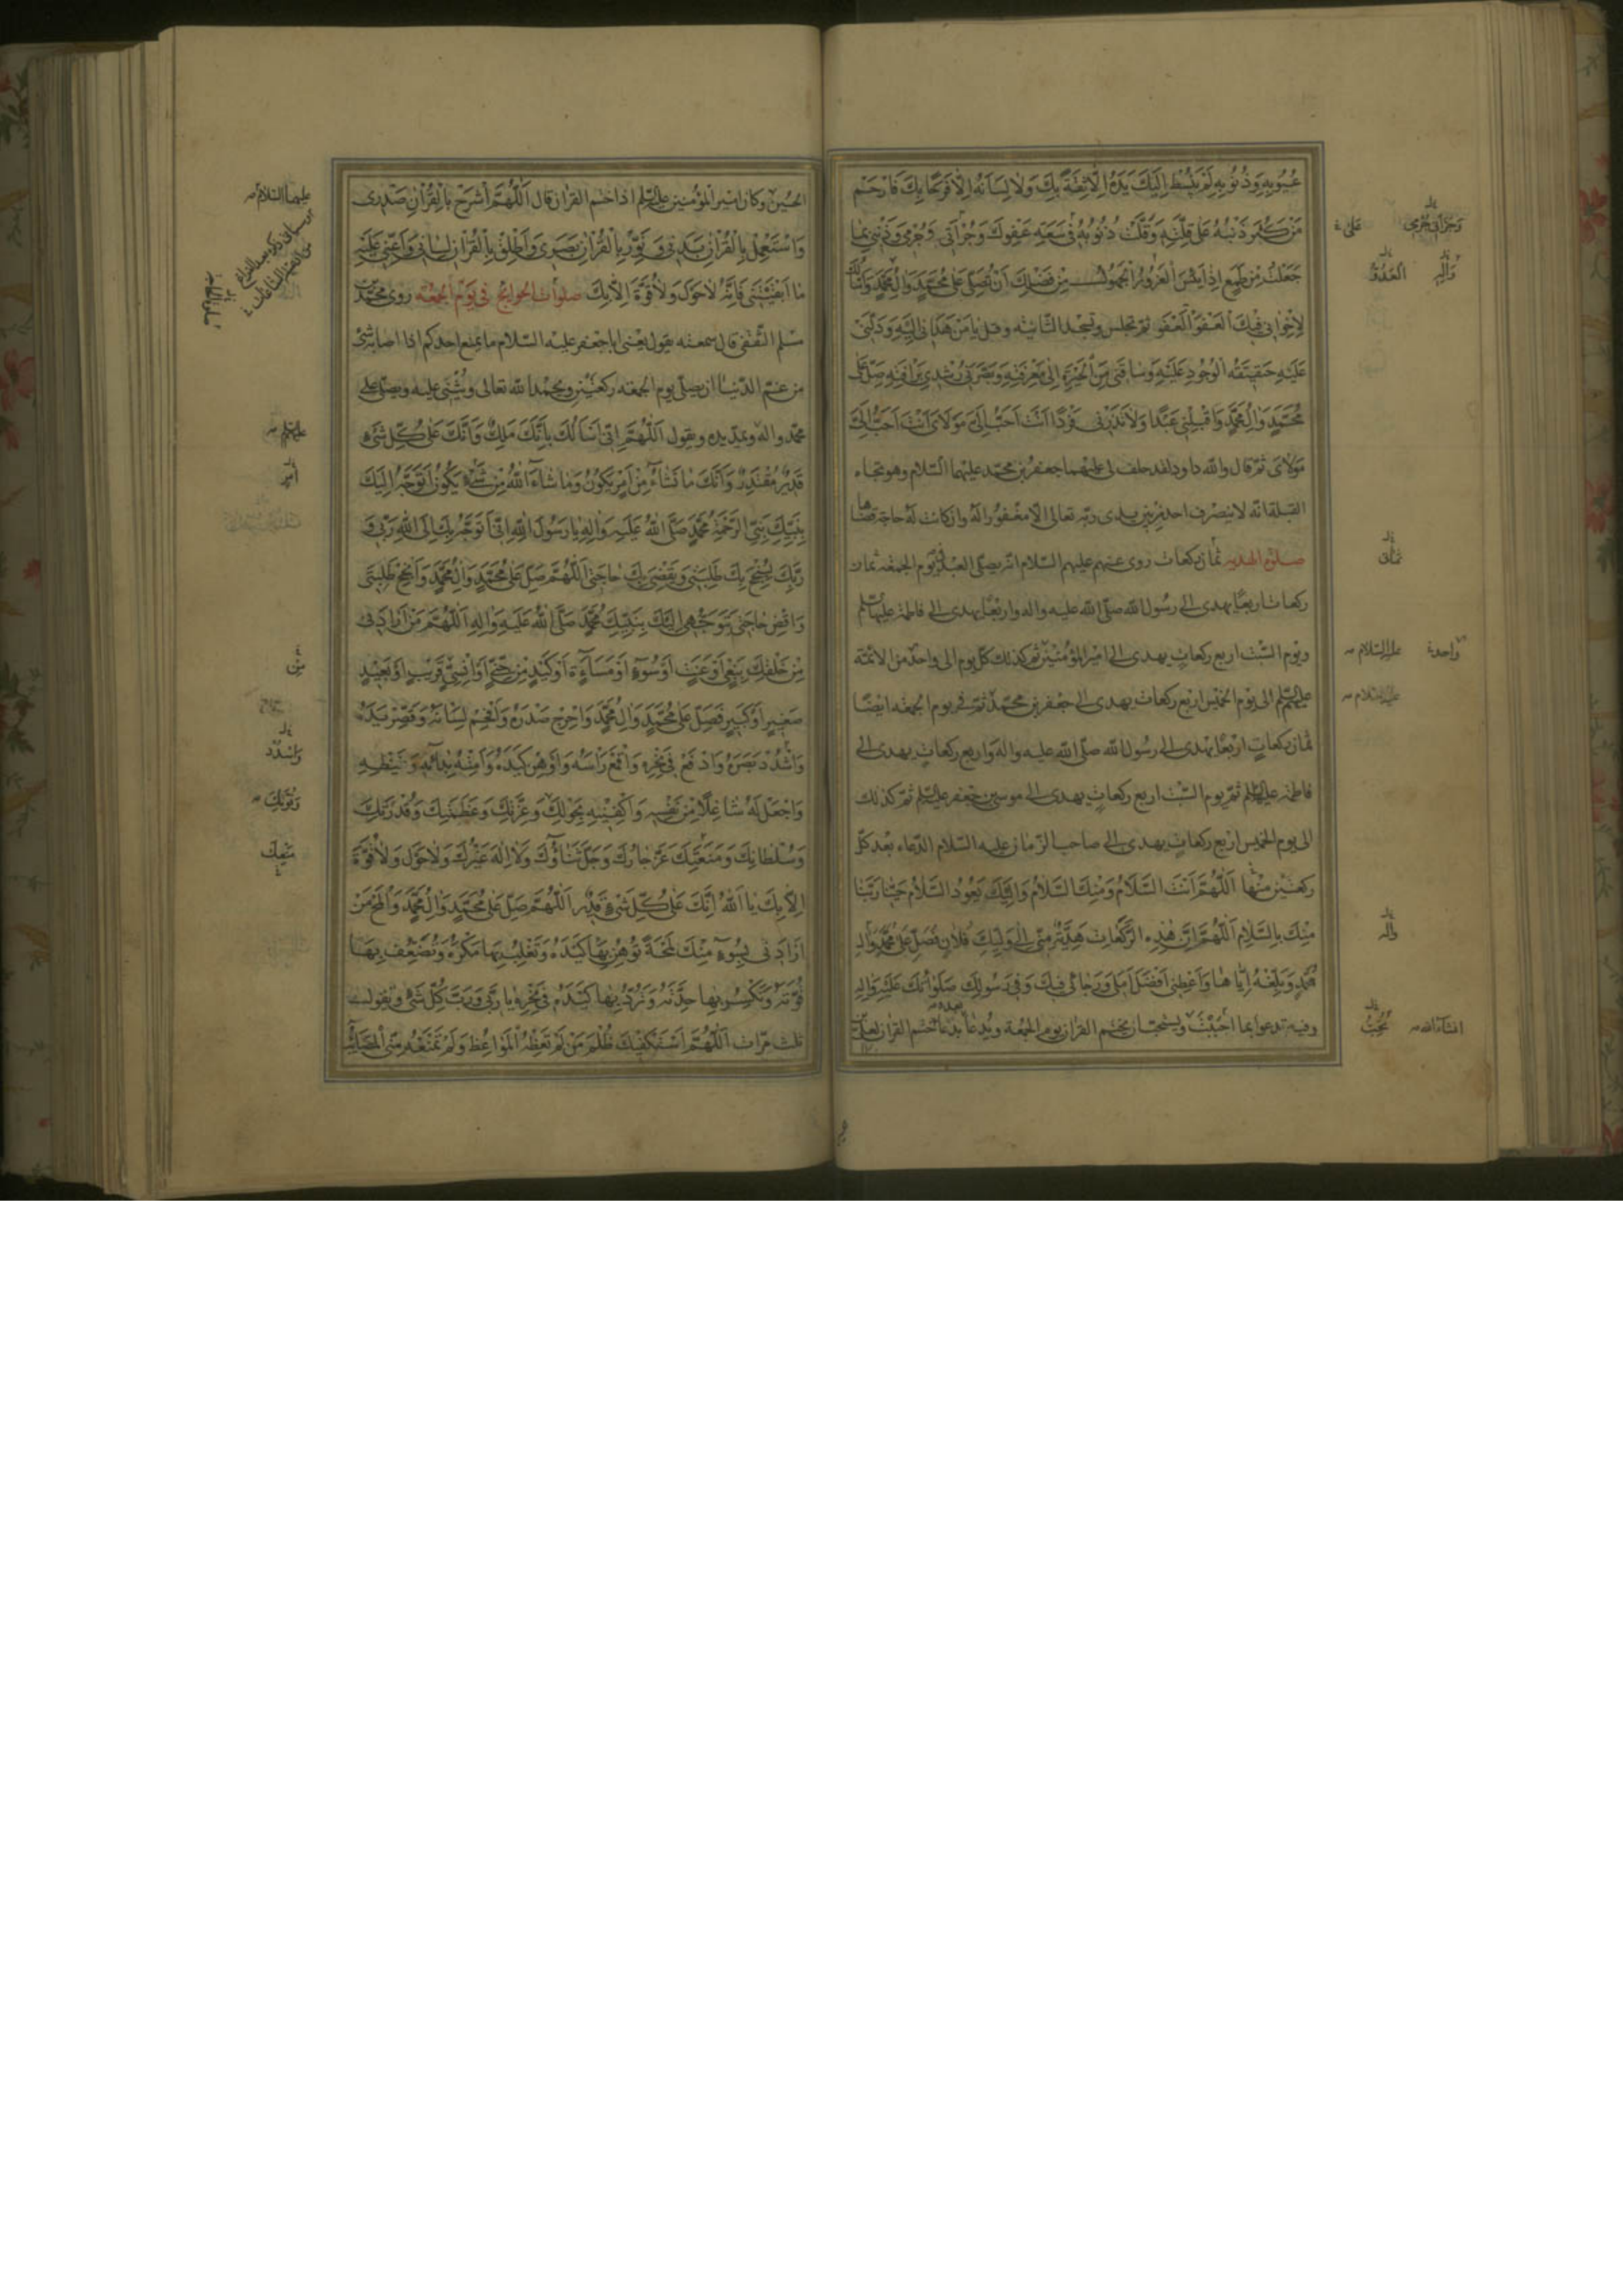 عُيُوبِهِ وَذُنُوبِهِ لَمْ يَبْسُطْ اِلَيْكَ يَدَهُ اِلّا ثِقَةً بِكَ وَلا لِسانَهُ اِلّا فَرَحًا بِكَ فَارْحَمْ
مَنْ كَثُرَ ذَنْبُهُ عَلى قِلَّتِهِ وَقَلَّتْ ذُنُوبُهُ فى سَعَةِ عَفْوِكَ وَجَرَّأَنى جُرْمى وَذَنْبى بِما
جَعَلْتَ مِنْ طَمَعٍ اِذا يَئِسَ الْغَرُورُ الْجَهُولُ مِنْ فَضْلِكَ اَنْ تُصَلِّىَ عَلى مُحَمَّدٍ وَالِ مُحَمَّدٍ وَاَسْأَلُكَ
لِاِخْوانى فيكَ الْعَفْوَ الْعَفْوَ ثم تجلس وتسجد الثانية وقل يا مَنْ هَدانى اِلَيْهِ وَدَلَّنى
عَلَيْهِ حَقيقَةُ الْوُجُودِ عَلَيْهِ وَساقَنى مِنَ الْحَيْرَةِ اِلى مَعْرِفَتِهِ وَبَصَّرَنى رُشْدى بِرَأْفَتِهِ صَلِّ عَلى
مُحَمَّدٍ وَالِ مُحَمَّدٍ وَاقْبَلْنى عَبْدًا وَلا تَذَرْنى فَرْدًا اَنْتَ اَحَبُّ اِلَىَّ مَوْلاىَ اَنْتَ اَحَبُّ اِلَىَّ
مَوْلاىَ ثم قال والله داود لقد حلف لى عليهما جعفر بن محمد عليهما السلام وهو تجاه
القبلة انه لا ينصرف احد من بين يدى ربه تعالى الا مغفورا له وان كانت له حاجة قضاها
صلوة الهدية ثمان ركعات روى عنهم عليهم السلام انه يصلى العبد فى يوم الجمعة ثمان
ركعات اربعا يهدى الى رسول الله صلى الله عليه واله واربعا يهدى الى فاطمة عليها السلم
ويوم السبت اربع ركعات يهدى الى امير المؤمنين ثم كذلك كل يوم الى واحد من الائمة
عليهم السلم الى يوم الخميس اربع ركعات يهدى الى جعفر بن محمد ثم فى يوم الجمعة ايضا
ثمان ركعات اربعا يهدى الى رسول الله صلى الله عليه واله واربع ركعات يهدى الى
فاطمة عليها السلم ثم يوم السبت اربع ركعات يهدى الى موسى بن جعفر عليه السلم ثم كذلك
الى يوم الخميس اربع ركعات يهدى الى صاحب الزمان عليه السلام الدعاء بعد كل
ركعتين منها اَللّهُمَّ اَنْتَ السَّلامُ وَمِنْكَ السَّلامُ وَاِلَيْكَ يَعُودُ السَّلامُ حَيِّنا رَبَّنا
مِنْكَ بِالسَّلامِ اَللّهُمَّ اِنَّ هذِهِ الرَّكَعاتِ هَدِيَّةٌ مِنّى اِلى وَلِيِّكَ فُلانٍ فَصَلِّ عَلى مُحَمَّدٍ وَالِ
مُحَمَّدٍ وَبَلِّغْهُ اِيّاها وَاَعْطِنى اَفْضَلَ اَمَلى وَرَجائى فيكَ وَفى رَسُولِكَ صَلَواتُكَ عَلَيْهِ وَالِهِ
وفيه تدعو بما احببت ويستحب ان يختم القران يوم الجمعة ويدعا بدعاء ختم القران لعلى بن
وَجَرَّأَنى جُرْمى
عَلى
وَآلِهِ
ثمانى
عليه السلام
واحد
عليه السلام
وآله
تُحِبُّ
انشاء الله
الحسين وكان امير المؤمنين عليه السلم اذا ختم القران قال اَللّهُمَّ اشْرَحْ بِالْقُرْانِ صَدْرى
وَاسْتَعْمِلْ بِالْقُرْانِ بَدَنى وَنَوِّرْ بِالْقُرْانِ بَصَرى وَاَطْلِقْ بِالْقُرْانِ لِسانى وَاَعِنّى عَلَيْهِ
ما اَبْقَيْتَنى فَاِنَّهُ لا حَوْلَ وَلا قُوَّةَ اِلّا بِكَ صلوات الحوائج فى يوم الجمعة روى محمد بن
مسلم الثقفى قال سمعته يقول يعنى ابا جعفر عليه السلام ما يمنع احدكم اذا اصابه شئ
من غم الدنيا ان يصلى يوم الجمعة ركعتين ويحمد الله تعالى ويثنى عليه ويصلى على
محمد واله ويمد يده ويقول اَللّهُمَّ اِنّى اَسْأَلُكَ بِاَنَّكَ مَلِكٌ وَاَنَّكَ عَلى كُلِّ شَىْءٍ
قَديرٌ مُقْتَدِرٌ وَاَنَّكَ ما تَشاءُ مِنْ اَمْرٍ يَكُونُ وَما شاءَ اللهُ مِنْ شَىْءٍ يَكُونُ اَتَوَجَّهُ اِلَيْكَ
بِنَبِيِّكَ نَبِىِّ الرَّحْمَةِ مُحَمَّدٍ صَلَّى اللهُ عَلَيْهِ وَالِهِ يا رَسُولَ اللهِ اِنّى اَتَوَجَّهُ بِكَ اِلَى اللهِ رَبّى وَ
رَبِّكَ لِيُنْجِحَ بِكَ طَلِبَتى وَيَقْضِىَ بِكَ حاجَتى اَللّهُمَّ صَلِّ عَلى مُحَمَّدٍ وَالِ مُحَمَّدٍ وَاَنْجِحْ طَلِبَتى
وَاقْضِ حاجَتى بِتَوَجُّهى اِلَيْكَ بِنَبِيِّكَ مُحَمَّدٍ صَلَّى اللهُ عَلَيْهِ وَالِهِ اَللّهُمَّ مَنْ اَرادَنى
مِنْ خَلْقِكَ بِبَغْىٍ اَوْ عَنَتٍ اَوْ سُوءٍ اَوْ مَساءَةٍ اَوْ كَيْدٍ مِنْ جِنّىٍّ اَوْ اِنْسِىٍّ قَريبٍ اَوْ بَعيدٍ
صَغيرٍ اَوْ كَبيرٍ فَصَلِّ عَلى مُحَمَّدٍ وَالِ مُحَمَّدٍ وَاَحْرِجْ صَدْرَهُ وَاَفْحِمْ لِسانَهُ وَقَصِّرْ يَدَهُ
وَاشْدُدْ بَصَرَهُ وَادْفَعْ فى نَحْرِهِ وَاقْمَعْ رَأْسَهُ وَاَوْهِنْ كَيْدَهُ وَاَمِتْهُ بِدائِهِ وَغَيْظِهِ
وَاجْعَلْ لَهُ شاغِلًا مِنْ نَفْسِهِ وَاكْفِنيهِ بِحَوْلِكَ وَعِزَّتِكَ وَعَظَمَتِكَ وَقُدْرَتِكَ
وَسُلْطانِكَ وَمَنَعَتِكَ عَزَّ جارُكَ وَجَلَّ ثَناؤُكَ وَلا اِلهَ غَيْرُكَ وَلا حَوْلَ وَلا قُوَّةَ
اِلّا بِكَ يا اَللهُ اِنَّكَ عَلى كُلِّ شَىْءٍ قَديرٌ اَللّهُمَّ صَلِّ عَلى مُحَمَّدٍ وَالِ مُحَمَّدٍ وَالْمَحْ مَنْ
اَرادَنى بِسُوءٍ مِنْكَ لَمْحَةً تُوهِنُ بِها كَيْدَهُ وَتَغْلِبُ بِها مَكْرَهُ وَتُضَعِّفُ بِها
قُوَّتَهُ وَتَكْسِرُ بِها حِدَّتَهُ وَتَرُدُّ بِها كَيْدَهُ فى نَحْرِهِ يا رَبّى وَرَبَّ كُلِّ شَىْءٍ وتقول
ثلث مرات اَللّهُمَّ اِنّى اَسْتَكْفيكَ ظُلْمَ مَنْ لَمْ تَعِظْهُ الْمَواعِظُ وَلَمْ تَمْنَعْهُ مِنّى الْمَصائِبُ
عليهما السلام
عليهم السلم
اَمْرٍ
مِنْ
وَاسْدُدْ
وَقُوَّتِكَ